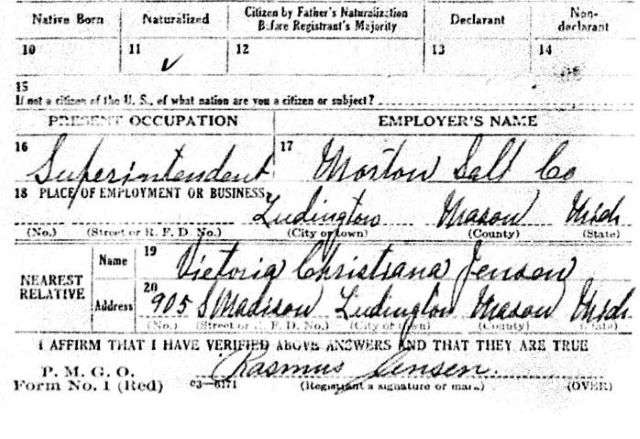 Native Born Naturalized Citizen by Father's Naturalization Before Registrant's Majority Declarant Non-declarant
10 11 ✓ 12 13 14
15
If not a citizen of the U. S., of what nation are you a citizen or subject?
PRESENT OCCUPATION EMPLOYER'S NAME
16 Superintendent 17 Morton Salt Co
18 PLACE OF EMPLOYMENT OR BUSINESS:
Ludington Mason Mich
(No.) (Street or R. F. D. No.) (City or town) (County) (State)
NEAREST RELATIVE
Name 19 Victoria Christiana Jensen
Address 20 905 S Madison Ludington Mason Mich
(No.) (Street or R. F. D. No.) (City or town) (County) (State)
I AFFIRM THAT I HAVE VERIFIED ABOVE ANSWERS AND THAT THEY ARE TRUE
P. M. G. O.
Form No. 1 (Red) 03-6171 Rasmus Jensen.
(Registrant's signature or mark) (OVER)